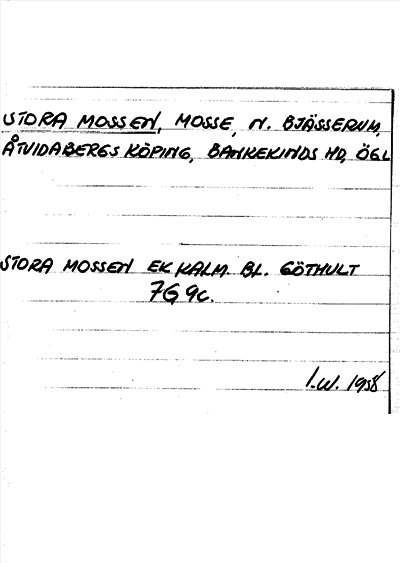 STORA MOSSEN, MOSSE, N. BJÄSSERUM,
ÅTVIDABERGS KÖPING, BANKEKINDS HD, ÖGL
STORA MOSSEN EK KALM. BL. GÖTHULT
7G 9c.
I.W. 1958